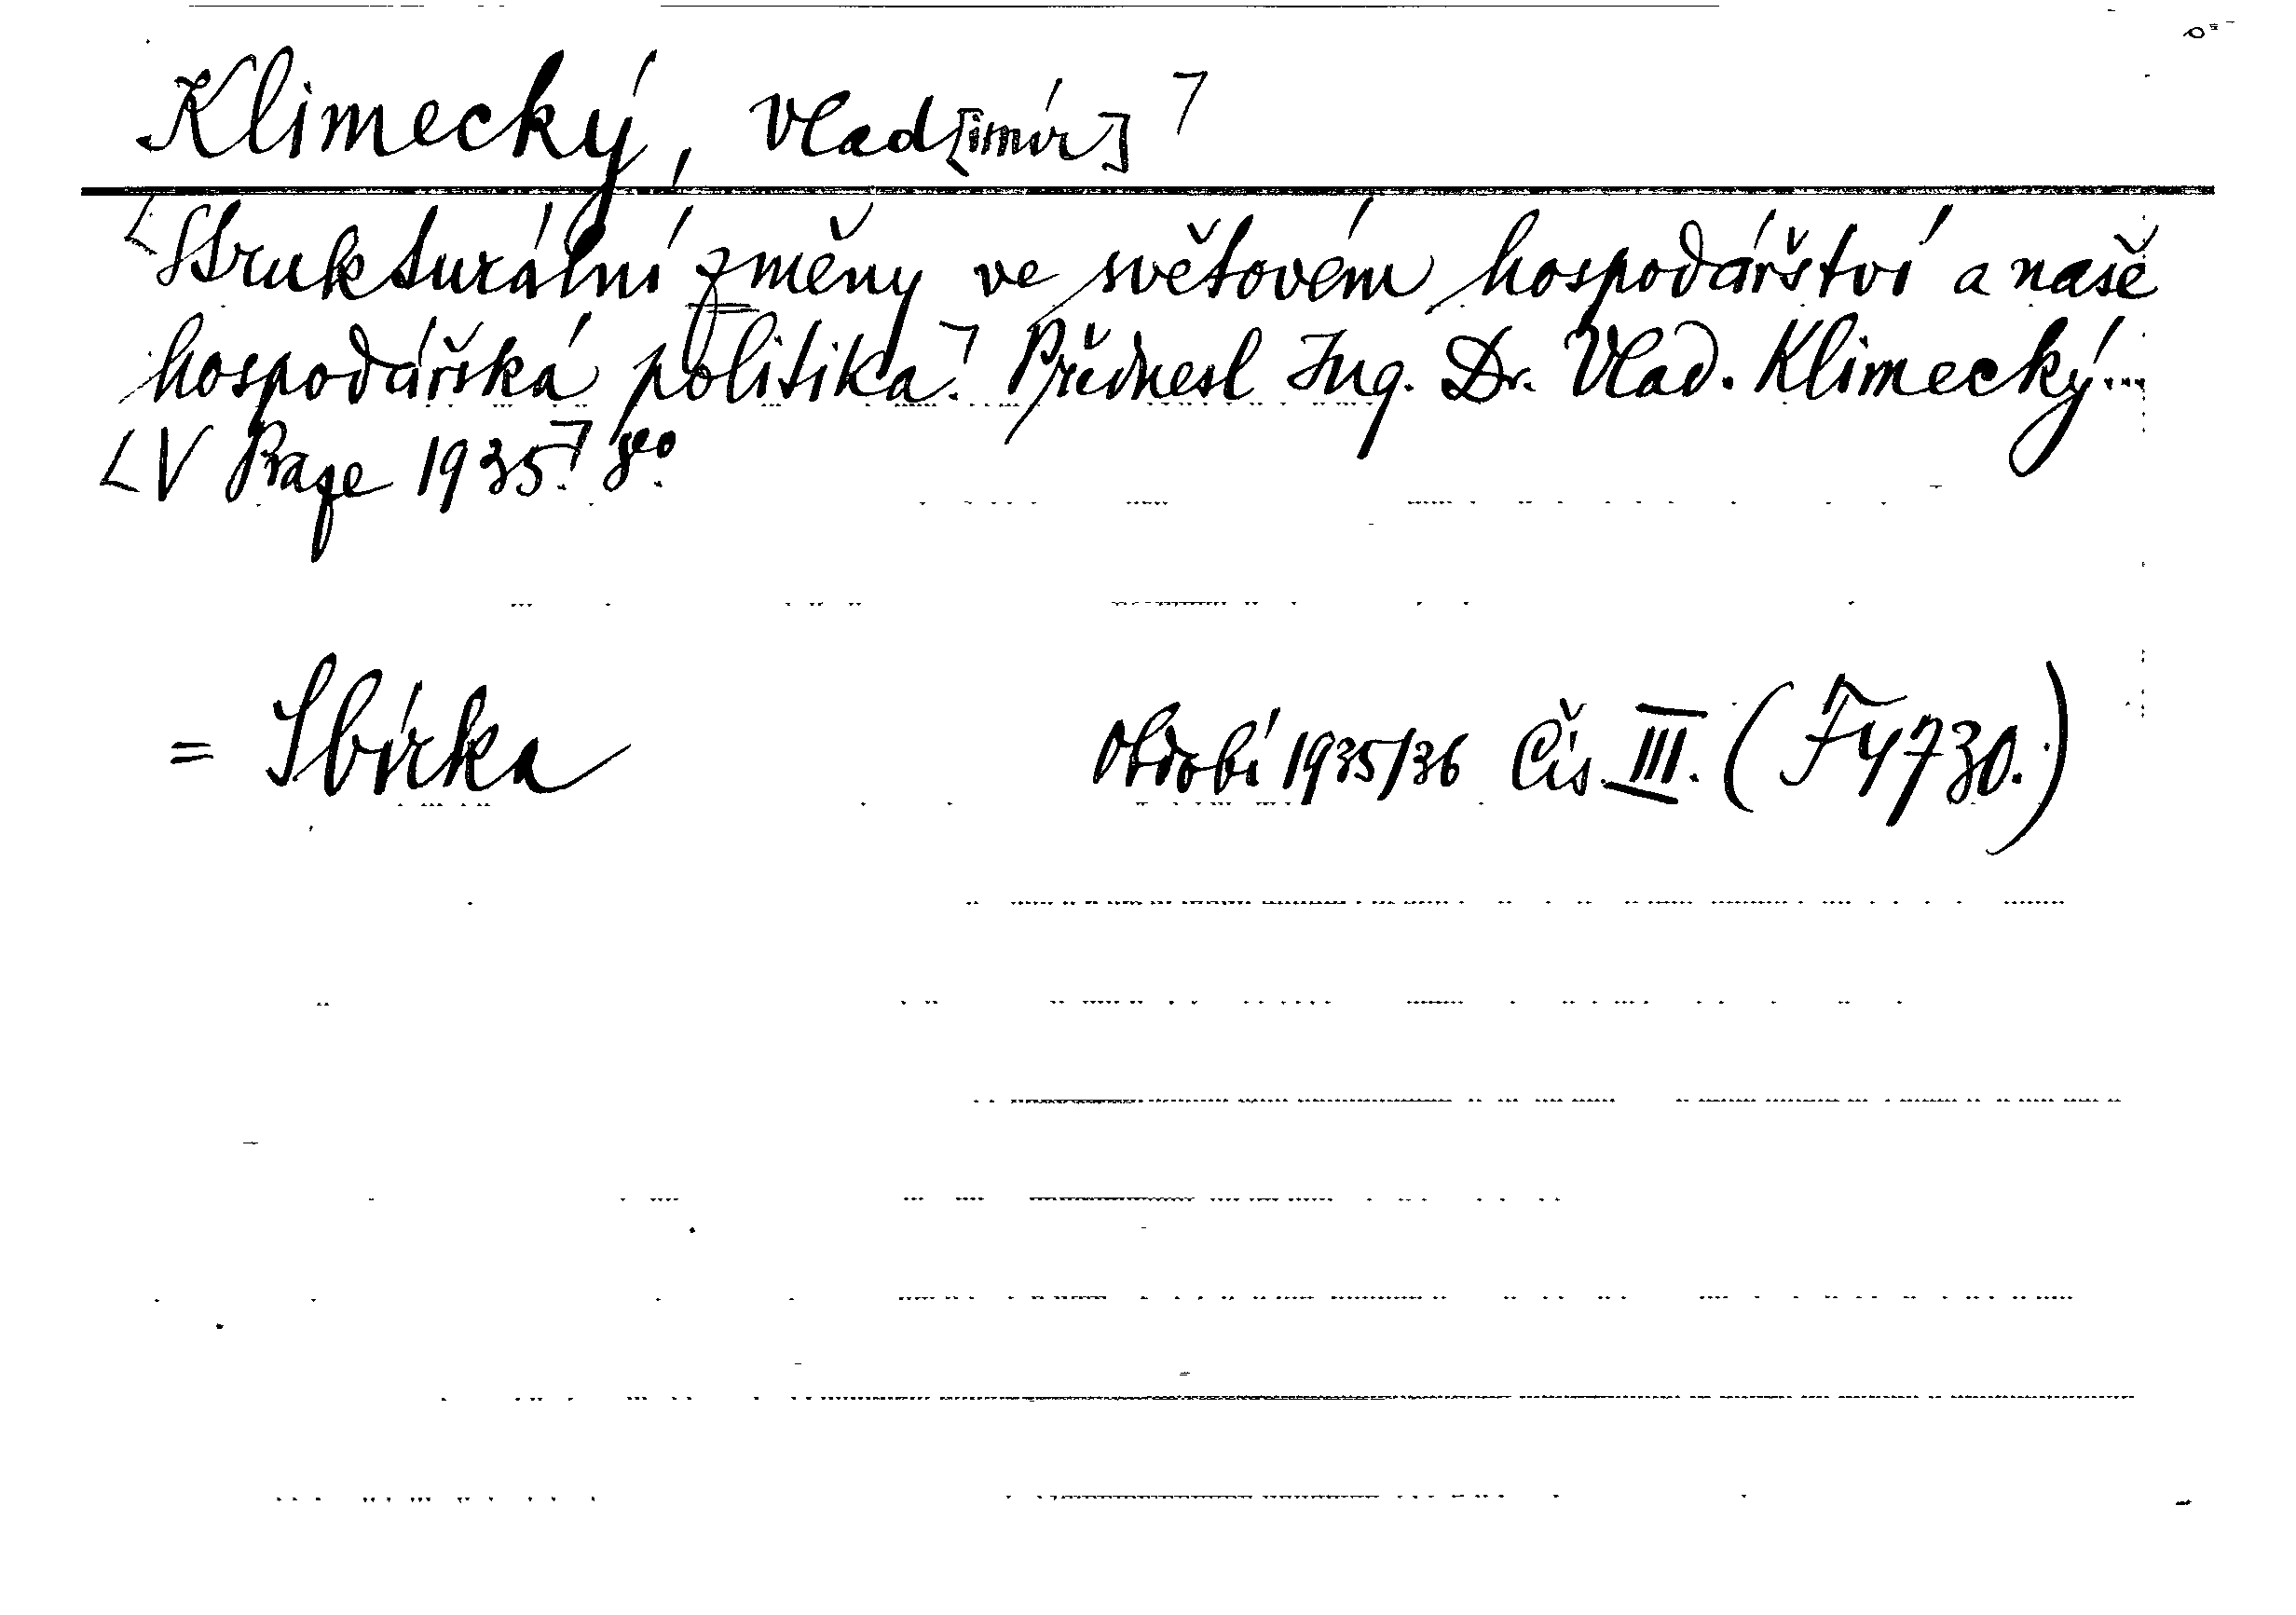 Klimecký, Vlad[imír]
Strukturální změny ve světovém hospodářství a naše
hospodářská politika. Přednesl Ing. Dr. Vlad. Klimecký...
V Praze 1935. 8°.
= Sbírka Období 1935/36 Čís. III. (F 4730.)